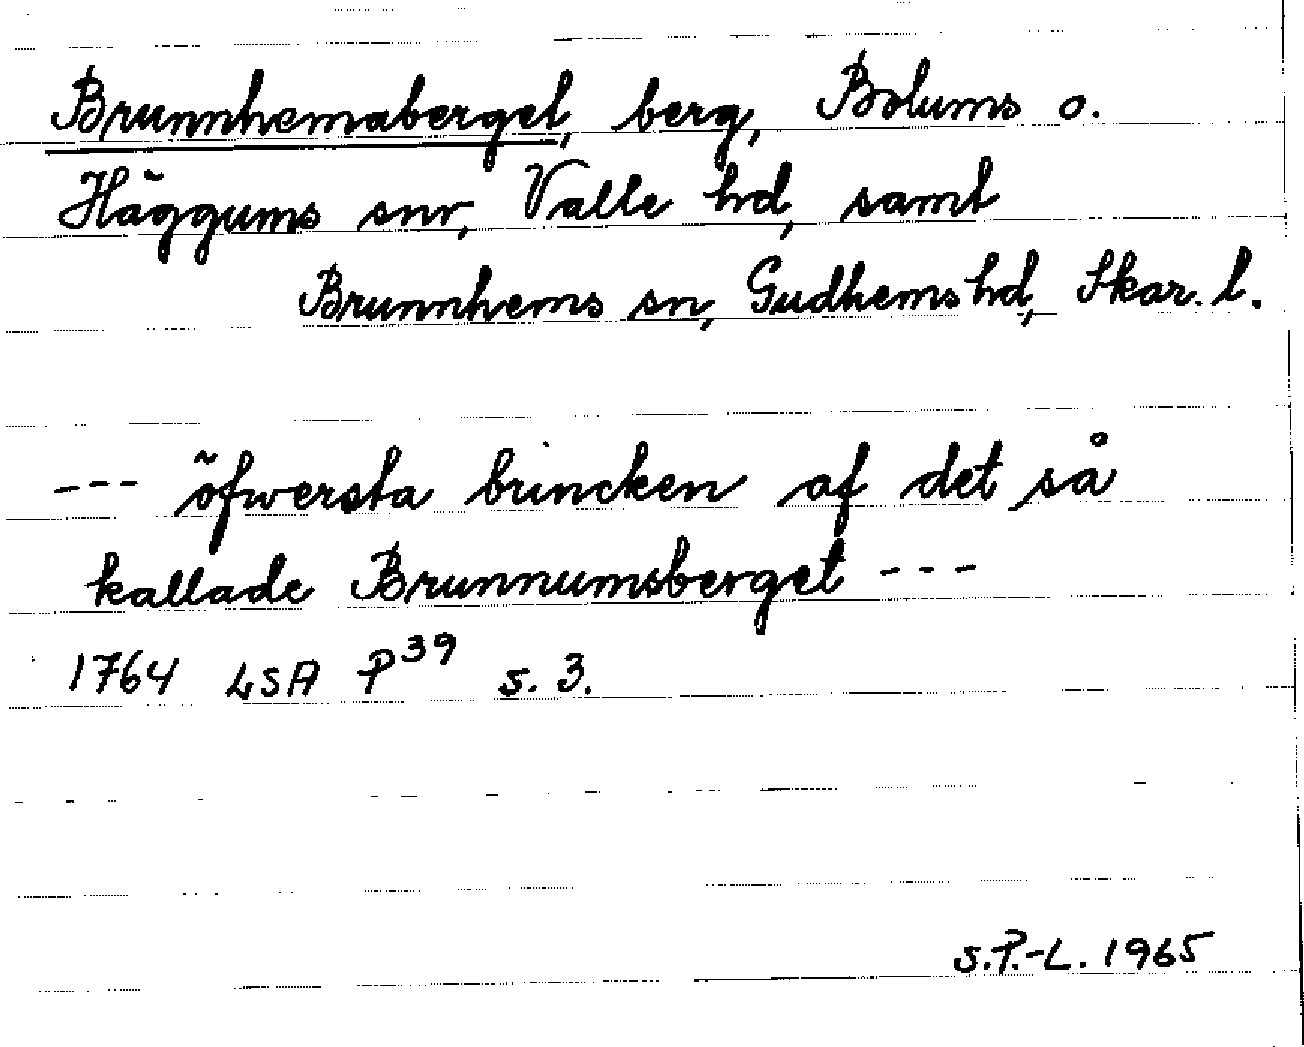 Brunnhemaberget, berg, Bolums o.
Häggums snr, Valle hd, samt
Brunnhems sn, Gudhems hd, Skar. l.
--- öfwersta brincken af det så
kallade Brunnumsberget ---
1764 LSA P39 s. 3.
S.P.-L. 1965